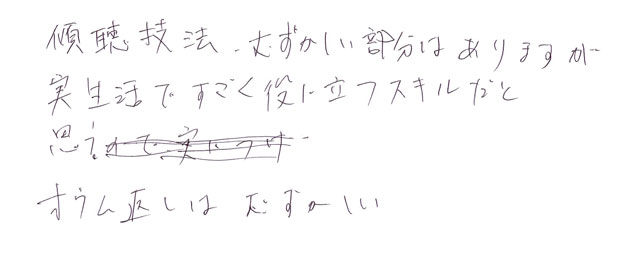 傾聴技法、むずかしい部分はありますが
実生活ですごく役に立つスキルだと
思う
オウム返しは むずかしい